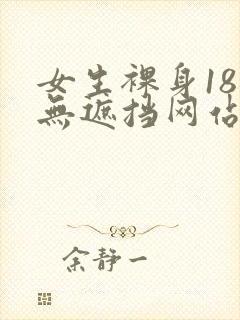 女生裸身18
無遮挡网佔
余静一